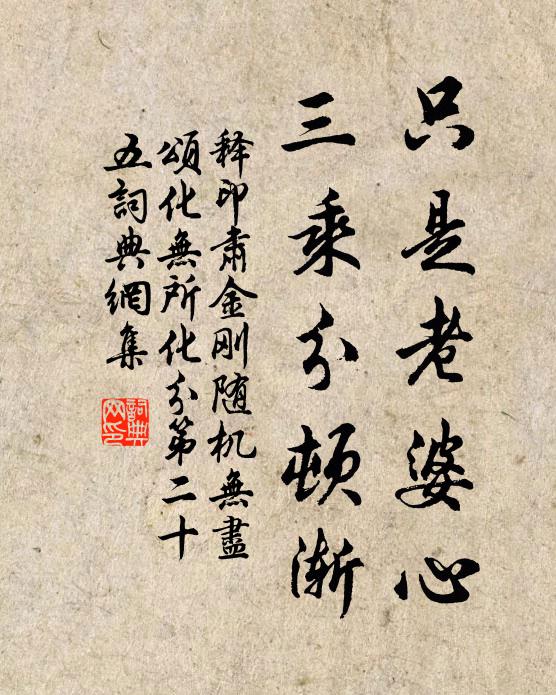 只是老婆心
三乘分頓漸
释印肃金刚随机無盡
頌化無所化分第二十
五詞典網集
詞典
网印